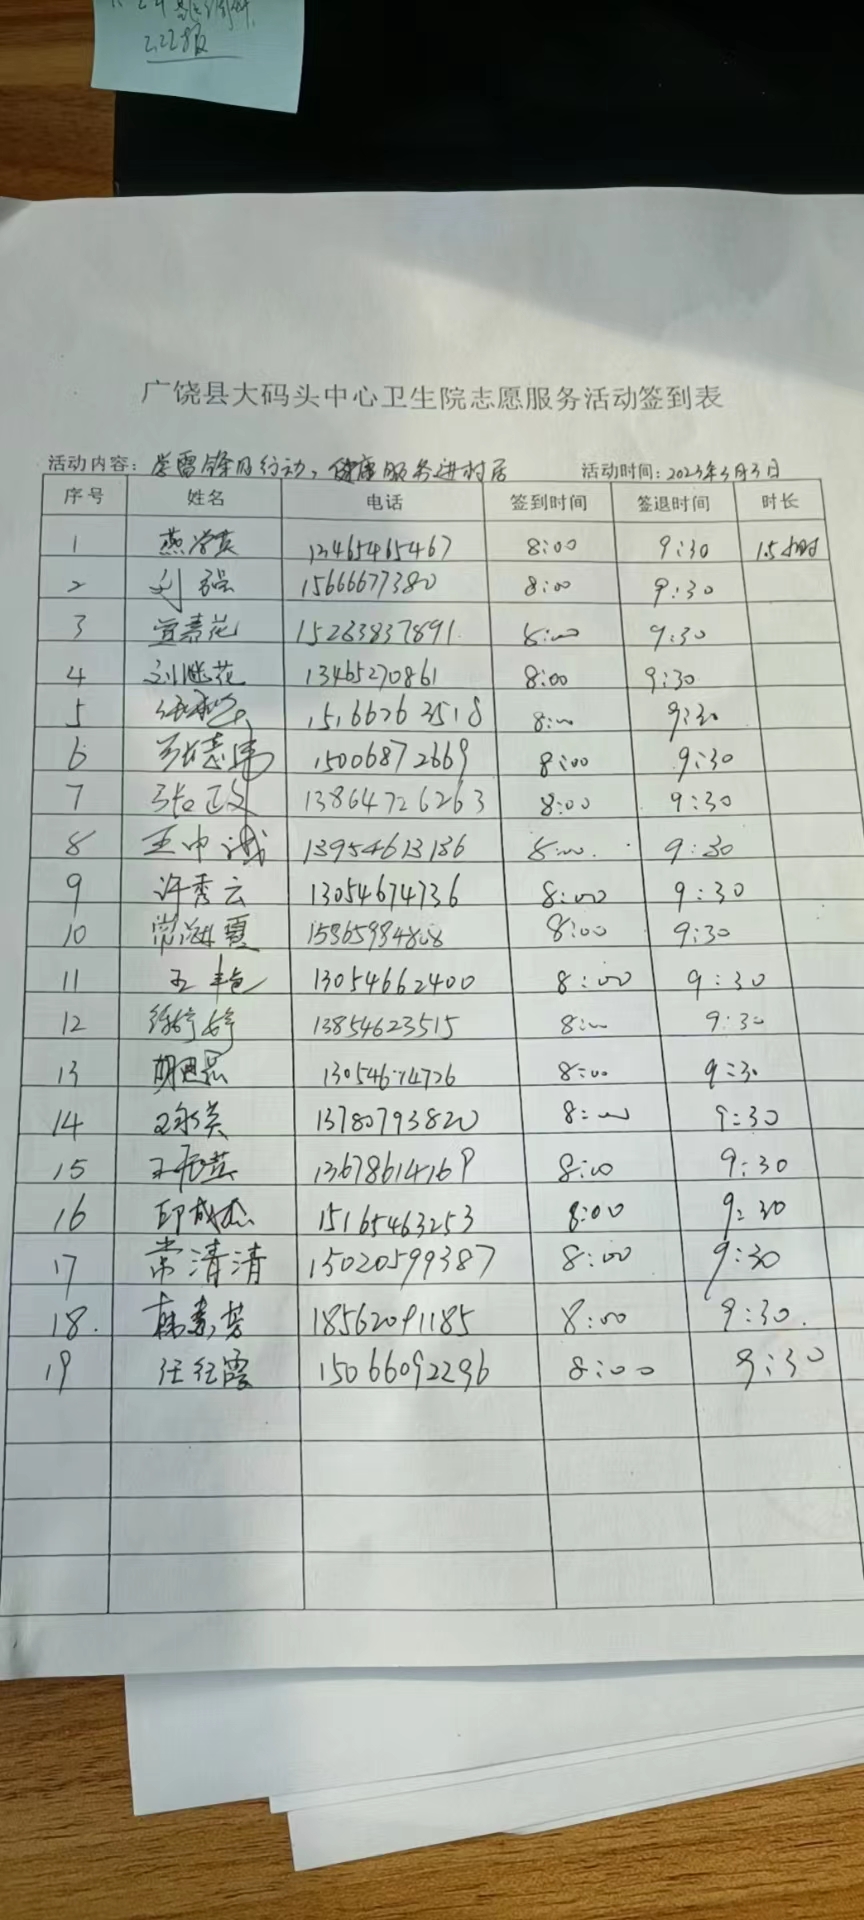 2.22报
广饶县大码头中心卫生院志愿服务活动签到表
活动内容：学雷锋月行动，健康服务进村居 活动时间：2023年3月3日
序号 姓名 电话 签到时间 签退时间 时长
1 燕学英 13465465467 8:00 9:30 1.5小时
2 刘强 15666677380 8:00 9:30
3 15263837891 8:00 9:30
4 13465270861 8:00 9:30
5 15166263518 8:00 9:30
6 张志伟 15006872669 8:00 9:30
7 张政 13864726263 8:00 9:30
8 王中诚 13954613136 8:00 9:30
9 许秀云 13054674736 8:00 9:30
10 常海霞 15365984808 8:00 9:30
11 王艳 13054662400 8:00 9:30
12 徐婷婷 13854623515 8:00 9:30
13 8:00 9:30
14 13780793820 8:00 9:30
15 13678614169 8:00 9:30
16 印成杰 15165463253 8:00 9:30
17 常清清 15020599387 8:00 9:30
18. 韩素芳 18562091185 8:00 9:30.
19 任红霞 15066092296 8:00 9:30